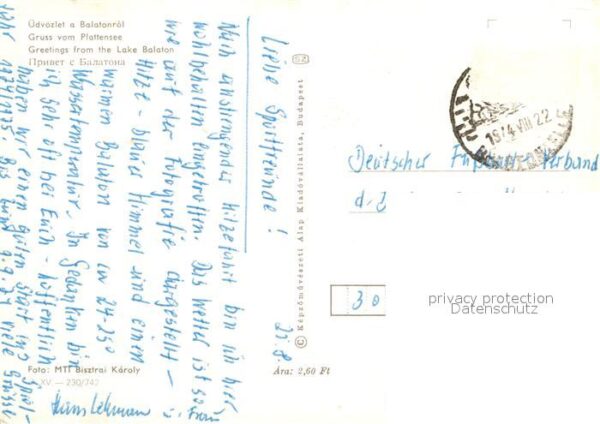 Üdvözlet a Balatonról
Gruss vom Plattensee
Greetings from the Lake Balaton
Привет с Балатона
Liebe Sportfreunde!
Nach anstrengender Hitzefahrt bin ich hier
wohlbehalten eingetroffen. Das Wetter ist so
wie auf der Fotografie ausgestellt –
Hitze – blauer Himmel und einen
warmen Balaton von ca 24-25°
Wassertemperatur. In Gedanken bin
ich sehr oft bei Euch – hoffentlich
haben wir einen guten Start ins Spiel-
jahr 1974/75. Bis zum 9.9.74 viele Grüsse
Hans Lehmann u. Frau
22.8.
Foto: MTI Bisztrai Károly
XV. — 230/742
© Képzőművészeti Alap Kiadóvállalata, Budapest
SZ
Ára: 2,60 Ft
1974 VIII 22
Deutscher Verband
30
privacy protection
Datenschutz